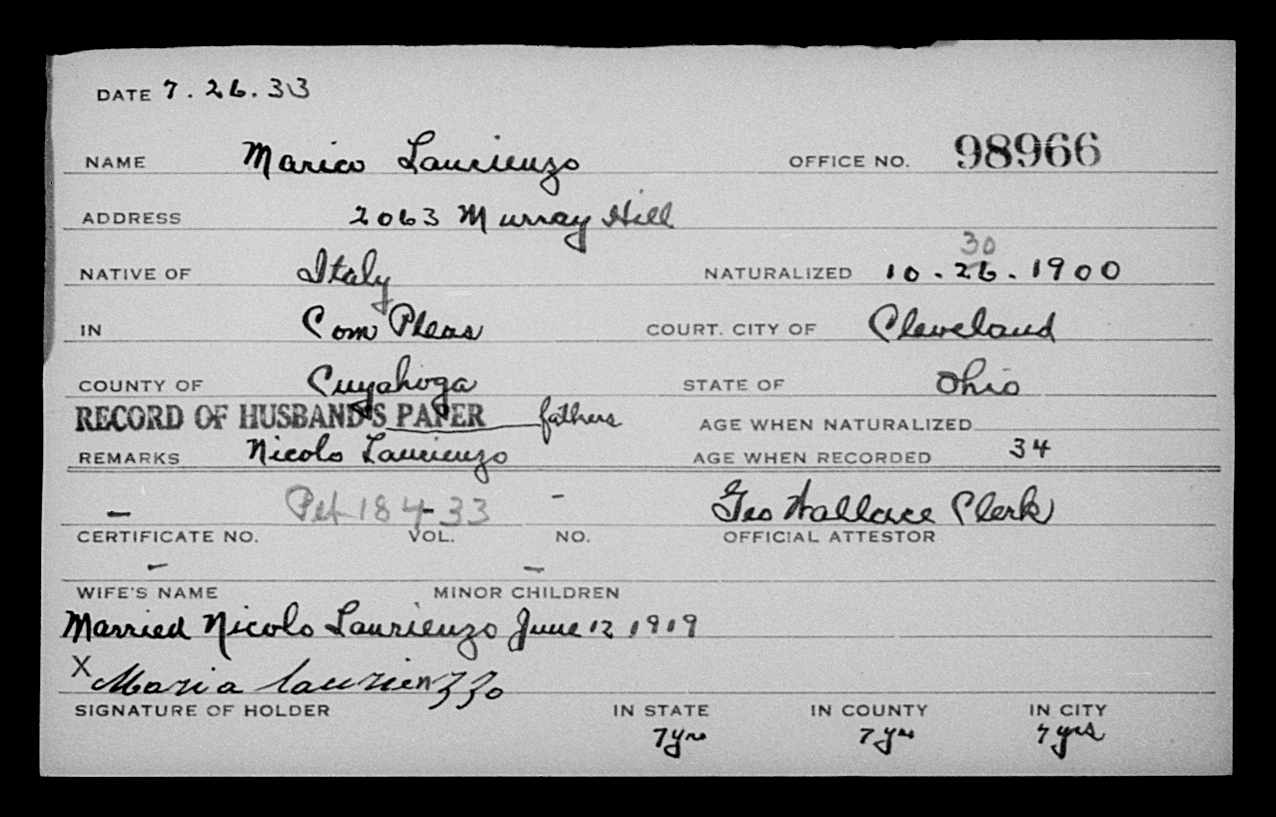 DATE 7.26.33
NAME Maria Laurienzo OFFICE NO. 98966
ADDRESS 2063 Murray Hill
30
NATIVE OF Italy NATURALIZED 10.26.1900
IN Com Pleas COURT. CITY OF Cleveland
COUNTY OF Cuyahoga STATE OF Ohio
RECORD OF HUSBAND'S PAPER fathers AGE WHEN NATURALIZED
REMARKS Nicolo Laurienzo AGE WHEN RECORDED 34
– Pet 184-33 – Geo Wallace Clerk
CERTIFICATE NO. VOL. NO. OFFICIAL ATTESTOR
– –
WIFE'S NAME MINOR CHILDREN
Married Nicolo Laurienzo June 12 1919
X Maria laurienzzo
SIGNATURE OF HOLDER IN STATE IN COUNTY IN CITY
7 yrs 7 yrs 7 yrs